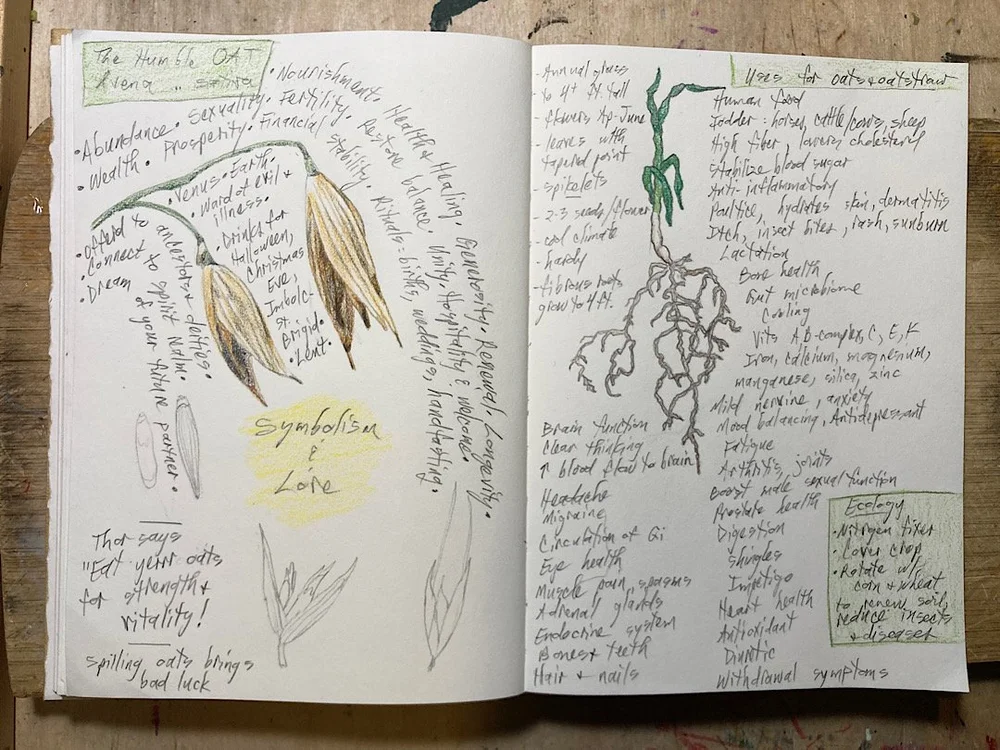 The Humble OAT
Avena sativa
• Nourishment.
Sexuality. Fertility.
• Abundance.
• Wealth. Prosperity. Financial
stability.
Health & Healing.
Restore balance. Unity. Hospitality & welcome.
Rituals = births, weddings, handfasting.
Generosity. Renewal. Longevity.
• Venus. Earth.
• Ward of evil &
illness.
• Drinks for
Halloween,
Christmas
Eve,
Imbolc-
St.
Brigid.
• Lent.
• Offerd to ancestors & deities.
• Connect to spirit realm.
• Dream of your future partner.
Symbolism
&
Lore
Thor says
"Eat yerrr oats
for strength &
vitality!
Spilling oats brings
bad luck
- Annual grass
to 4+ ft tall
- flowers Ap-June
- leaves with
tapered point
spikelets
- 2-3 seeds/flower
- cool climate
- hardy
- fibrous roots
grow to 4 ft.
Uses for oats & oatstraw
Human food
Fodder: horses, cattle/cows, sheep
High fiber, lowers cholesterol
Stabilize blood sugar
Anti-inflammatory
Poultice, hydrates skin, dermatitis
Itch, insect bites, rash, sunburn
Lactation
Bone health
Gut microbiome
Cooling
Vits A,B-complex, C, E, K
Iron, calcium, magnesium,
manganese, silica, zinc
Mild nervine, anxiety
Mood balancing, Antidepressant
Fatigue
Arthritis, joints
Boost male sexual function
Prostate health
Digestion
Shingles
Impetigo
Heart health
Antioxidant
Diuretic
Withdrawal symptoms
Brain function
Clear thinking
↑ blood flow to brain
Headache
Migraine
Circulation of Qi
Eye health
Muscle pain, spasms
Adrenal glands
Endocrine system
Bones & teeth
Hair & nails
Ecology
• Nitrogen fixer
• Cover crop
• Rotate w/
corn & wheat
to renew soil,
reduce insects
& diseases